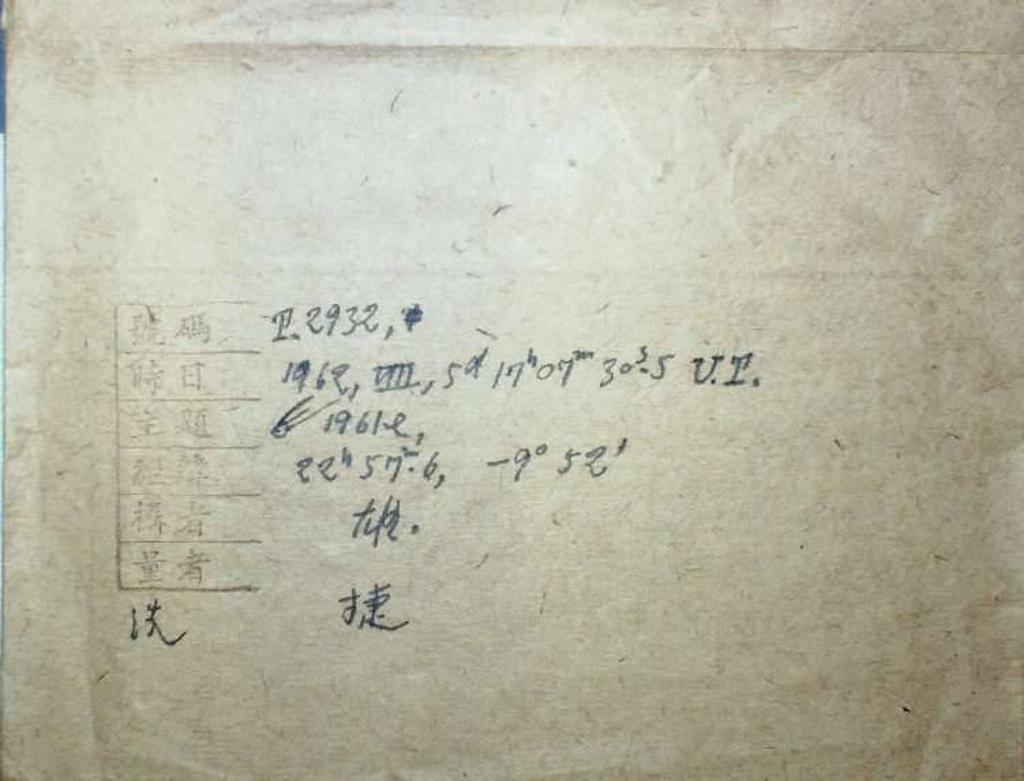 號碼 P.2932,
時日 1962, VIII, 5ᵈ 17ʰ07ᵐ30ˢ.5 U.T.
主題 1961e,
經緯 22ʰ57ᵐ.6, -9°52'
攝者 雄.
量者
洗 捷